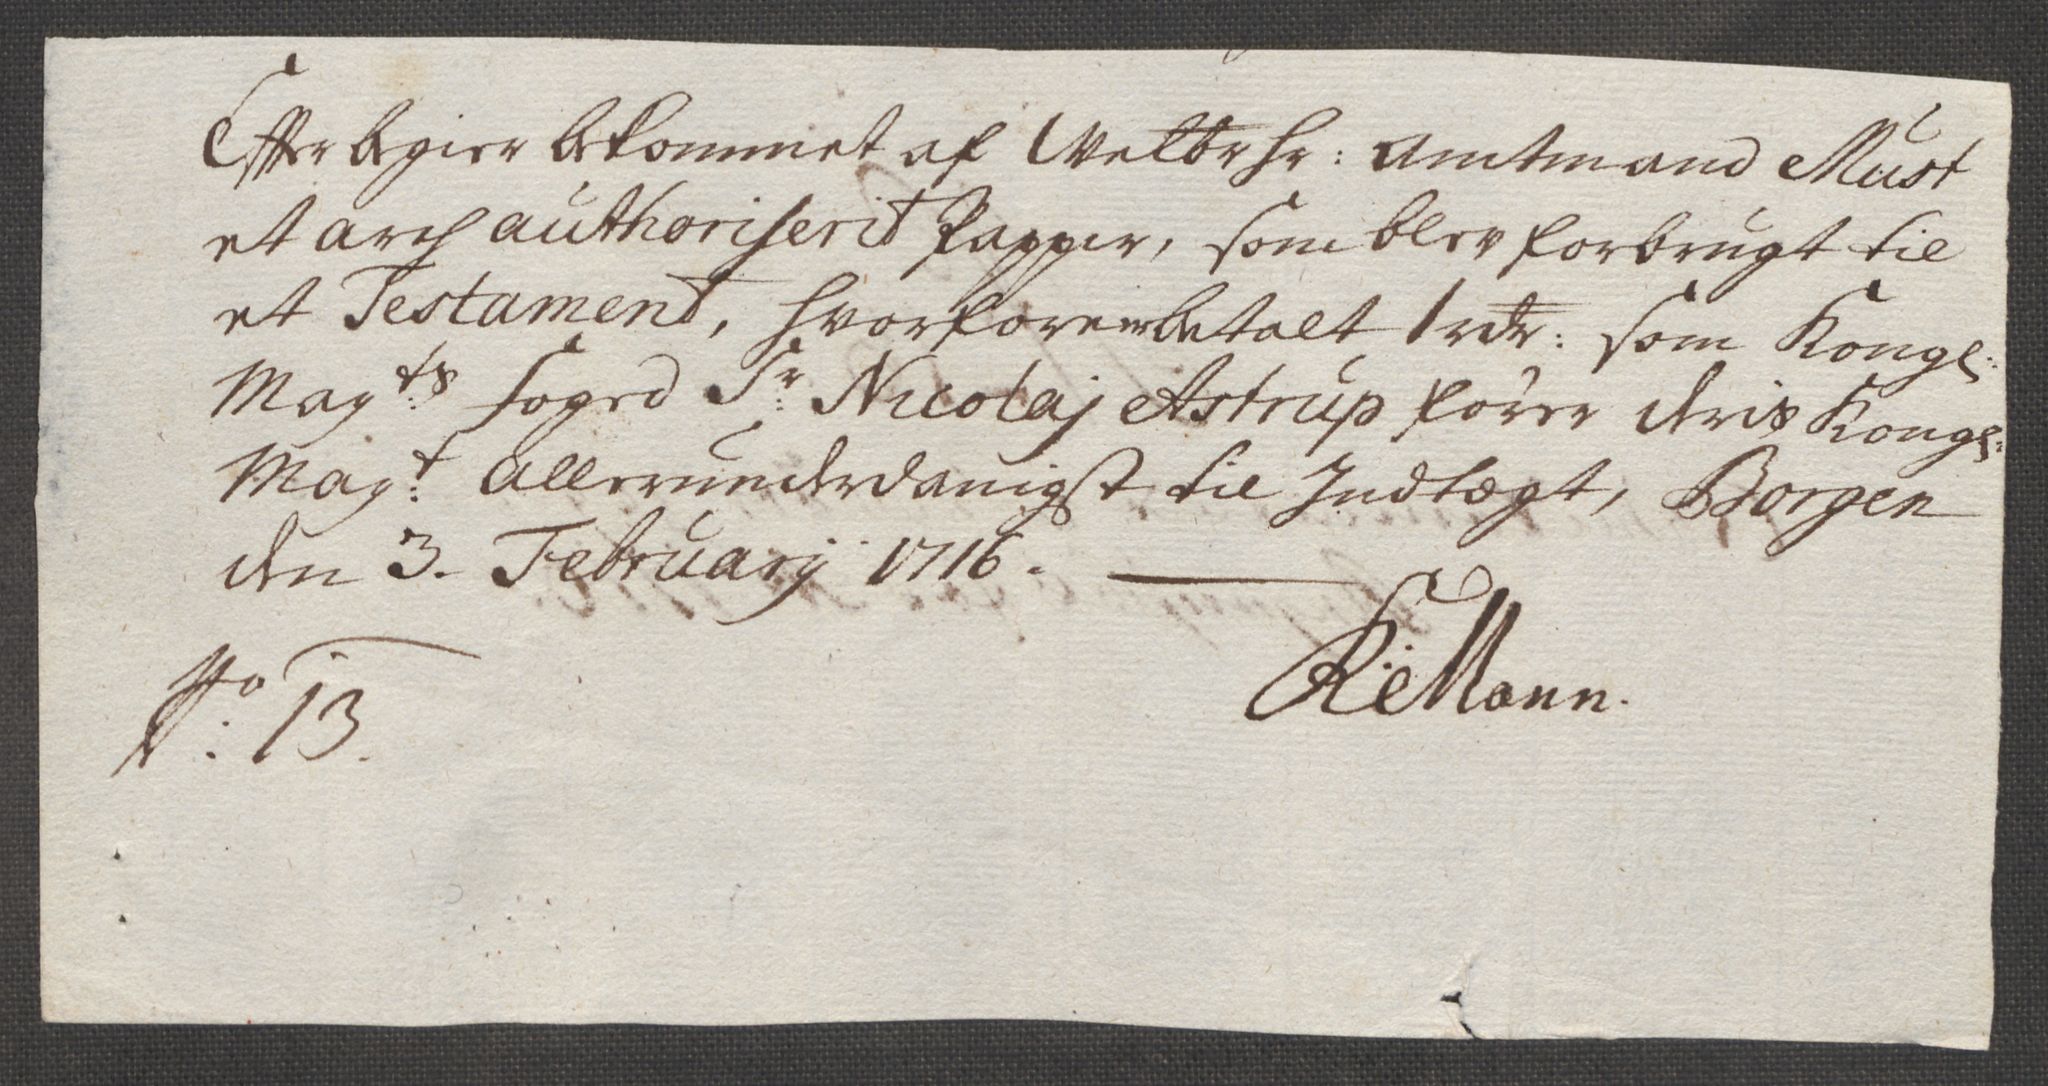 Effter begier bekommet af Welbr Hr: Amtmand Must
et arch authoriserit Papper, som blev forbrugt til
et Testament, hvorforre er betalt 1 rdr: som Kongl:
Mayts: foged Sr: Nicolaj Astrup fører deris Kongl:
Mayt: Allerunderdanigst til Indtægt, Borgen
den 3. February 1716.
RHMann.
No: 13.